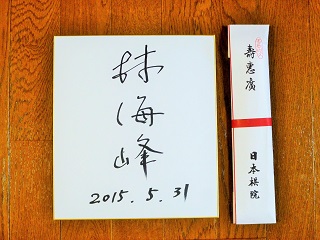 林海峰
2015.5.31
寿惠廣
日本棋院